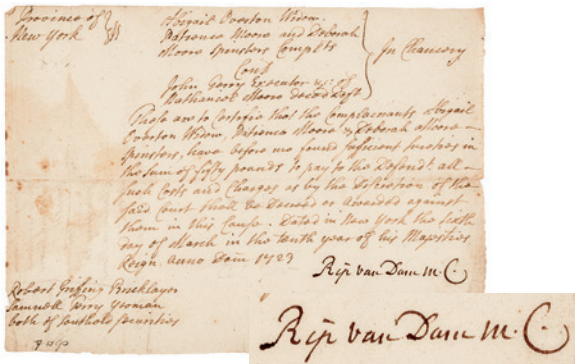 Province of
New York } SS
Abigail Overton Widow.
Patience Moore and Deborah
Moore Spinsters Complts
Cont
John Gerry Executor &c: of
Nathaniel Moore Decēd Deft
In Chancery
These are to Certifie that the Complainants Abigail
Overton Widow, Patience Moore & Deborah Moore
Spinsters, have before me found sufficient sureties in
the sum of fifty pounds to pay to the Defendt. all
such Costs and Charges as by the Discretion of the
said Court shall be Decreed or awarded against
them in this Cause. Dated in New York the sixth
day of March in the tenth year of his Majesties
Reign. Anno Dom 1723
Rip van Dam M. C.
Robert Griffing Bricklayer
Samuell Terry Yeoman
both of Southold Securities
Rip van Dam M. C.